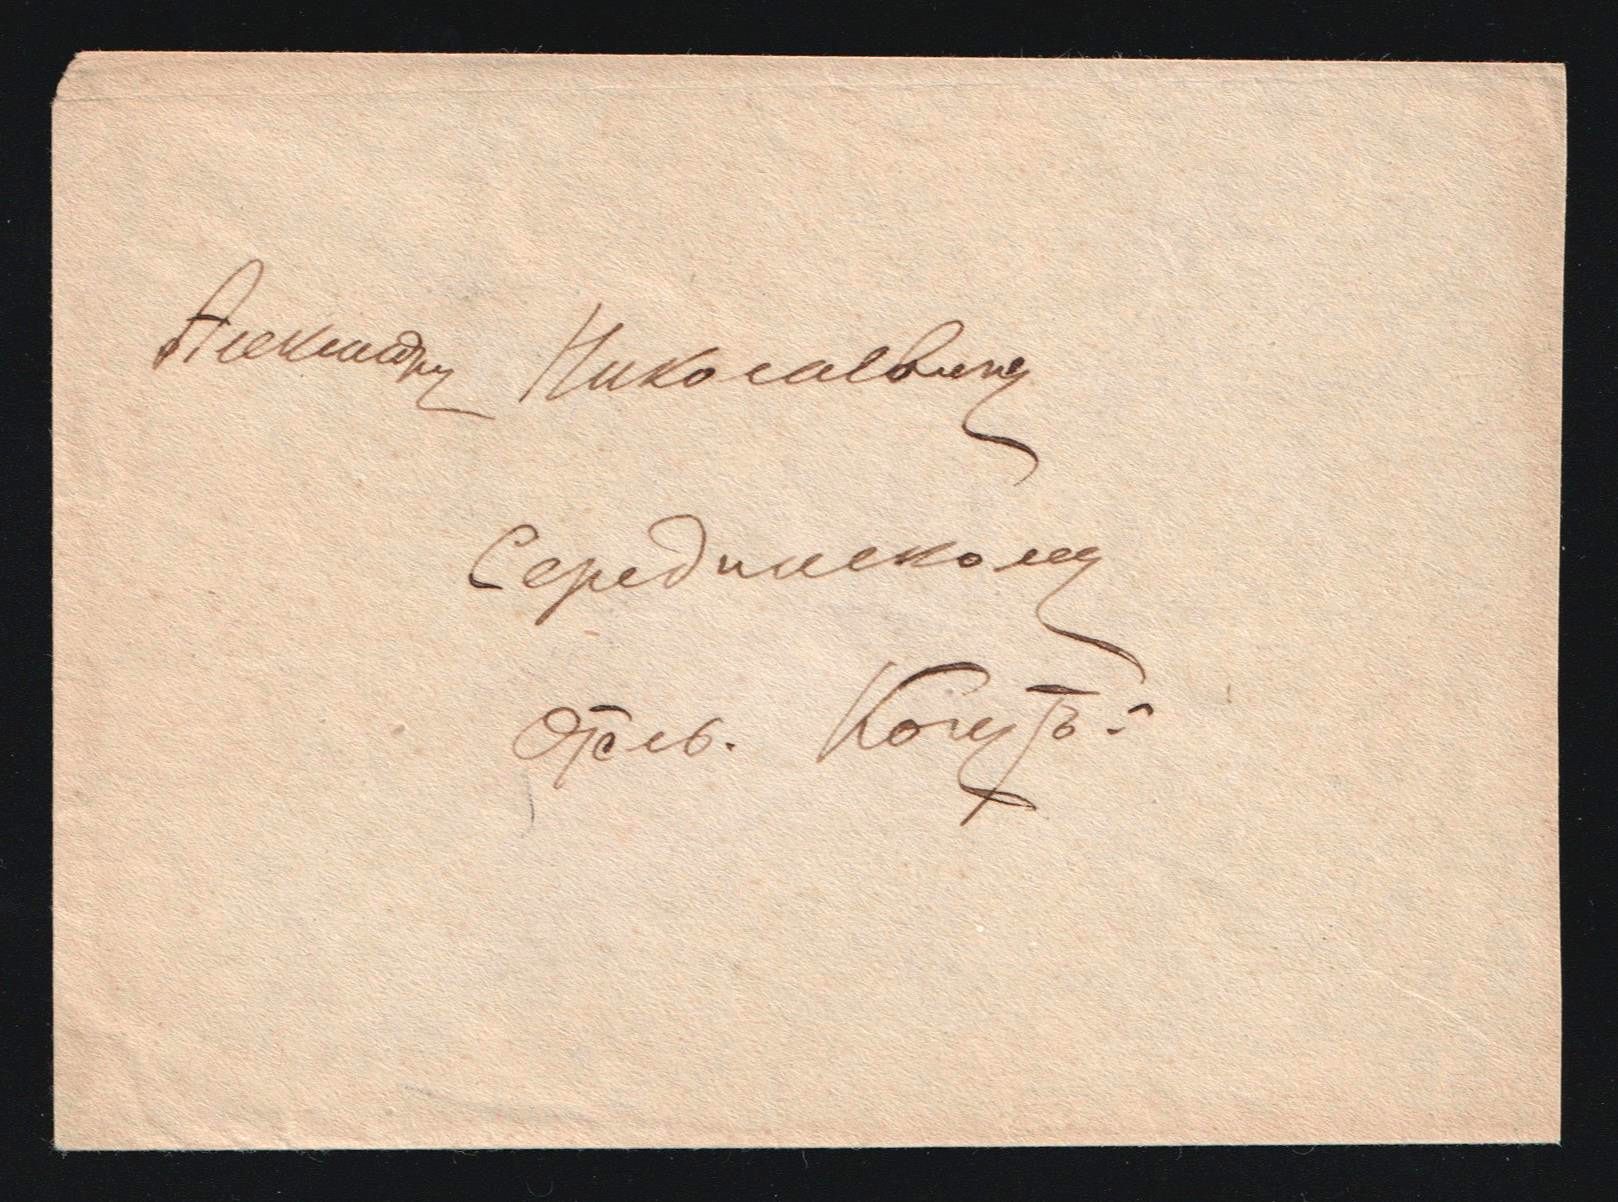 Александру Николаевичу
Серединскому
Отель. Кочутъ: